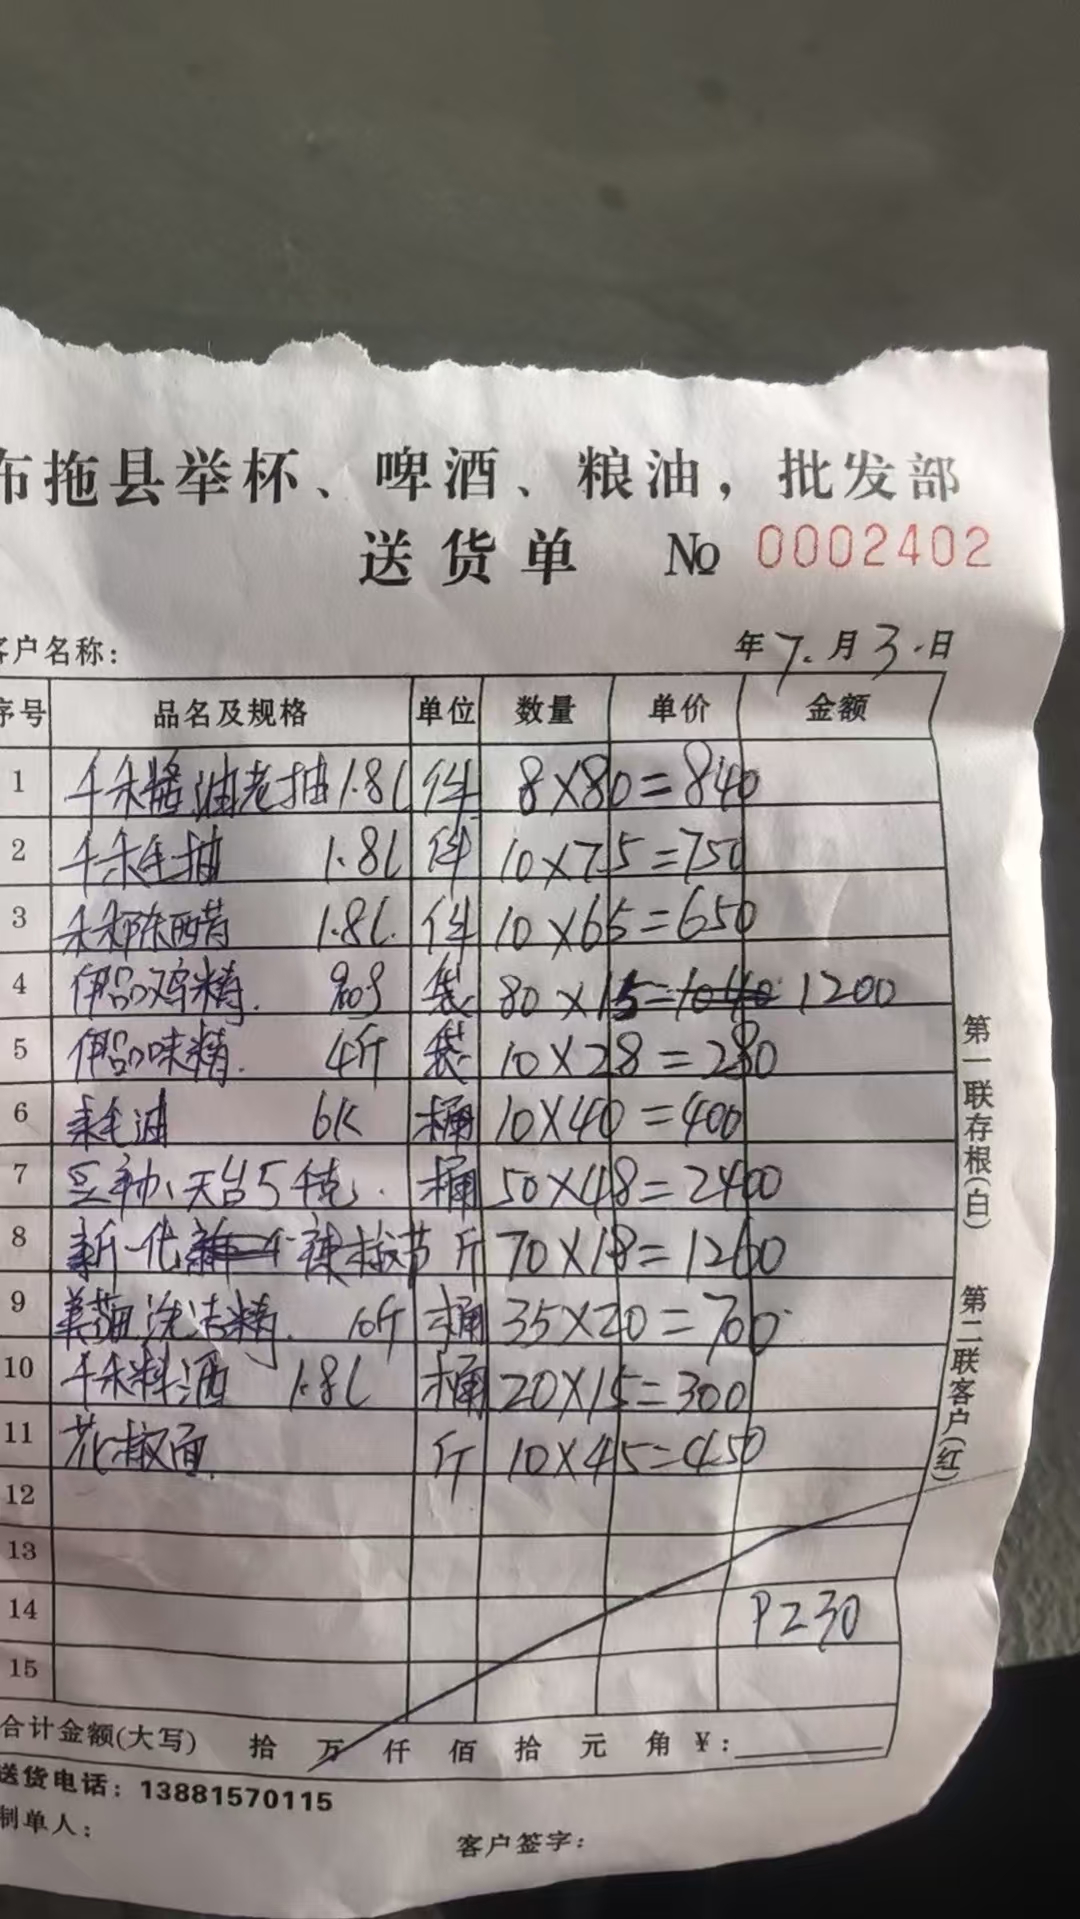 布拖县举杯、啤酒、粮油，批发部
送货单 № 0002402
客户名称： 年 7. 月 3. 日
序号 品名及规格 单位 数量 单价 金额
1 千禾酱油老抽 1.8L 件 8×80=840
2 千禾生抽 1.8L 件 10×75=750
3 千禾陈醋 1.8L. 件 10×65=650
4 伊品鸡精. 袋 80×15=1040 1200
5 伊品味精. 4斤 袋 10×28=280
6 油 6K 桶 10×40=400
7 天台5千克. 桶 50×48=2400
8 新一代 辣椒节 斤 70×18=1260
9 洗洁精. 10斤 桶 35×20=700
10 千禾料酒 1.8L 桶 20×15=300
11 花椒面. 斤 10×45=450
12
13
14 9230
15
合计金额(大写) 拾 万 仟 佰 拾 元 角 ¥:
送货电话：13881570115
制单人：
客户签字：
第一联存根(白) 第二联客户(红)